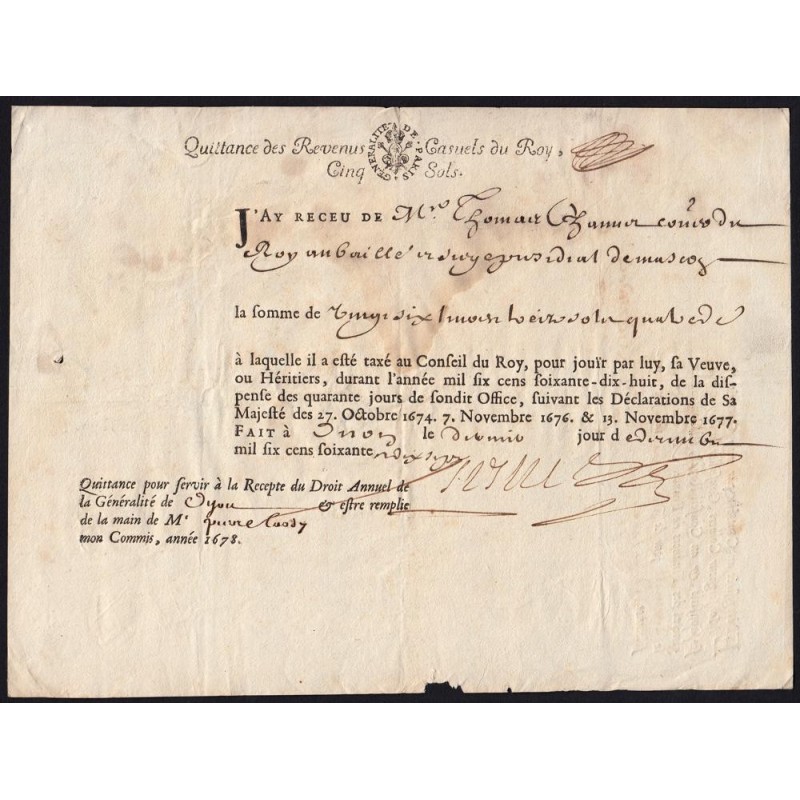 GENERALITE DE PARIS
Quittance des Revenus Casuels du Roy,
Cinq Sols.
J'AY RECEU DE Mre Thomas
Roy au
la somme de vingt six sols
à laquelle il a esté taxé au Conseil du Roy, pour joüir par luy, sa Veuve,
ou Héritiers, durant l'année mil six cens soixante-dix-huit, de la dis-
pense des quarante jours de sondit Office, suivant les Déclarations de Sa
Majesté des 27. Octobre 1674. 7. Novembre 1676. & 13. Novembre 1677.
FAIT à Dijon le dernier jour d
mil six cens soixante
Quittance pour servir à la Recepte du Droit Annuel de
la Généralité de Dijon & estre remplie
de la main de Mr pierre
mon Commis, année 1678.